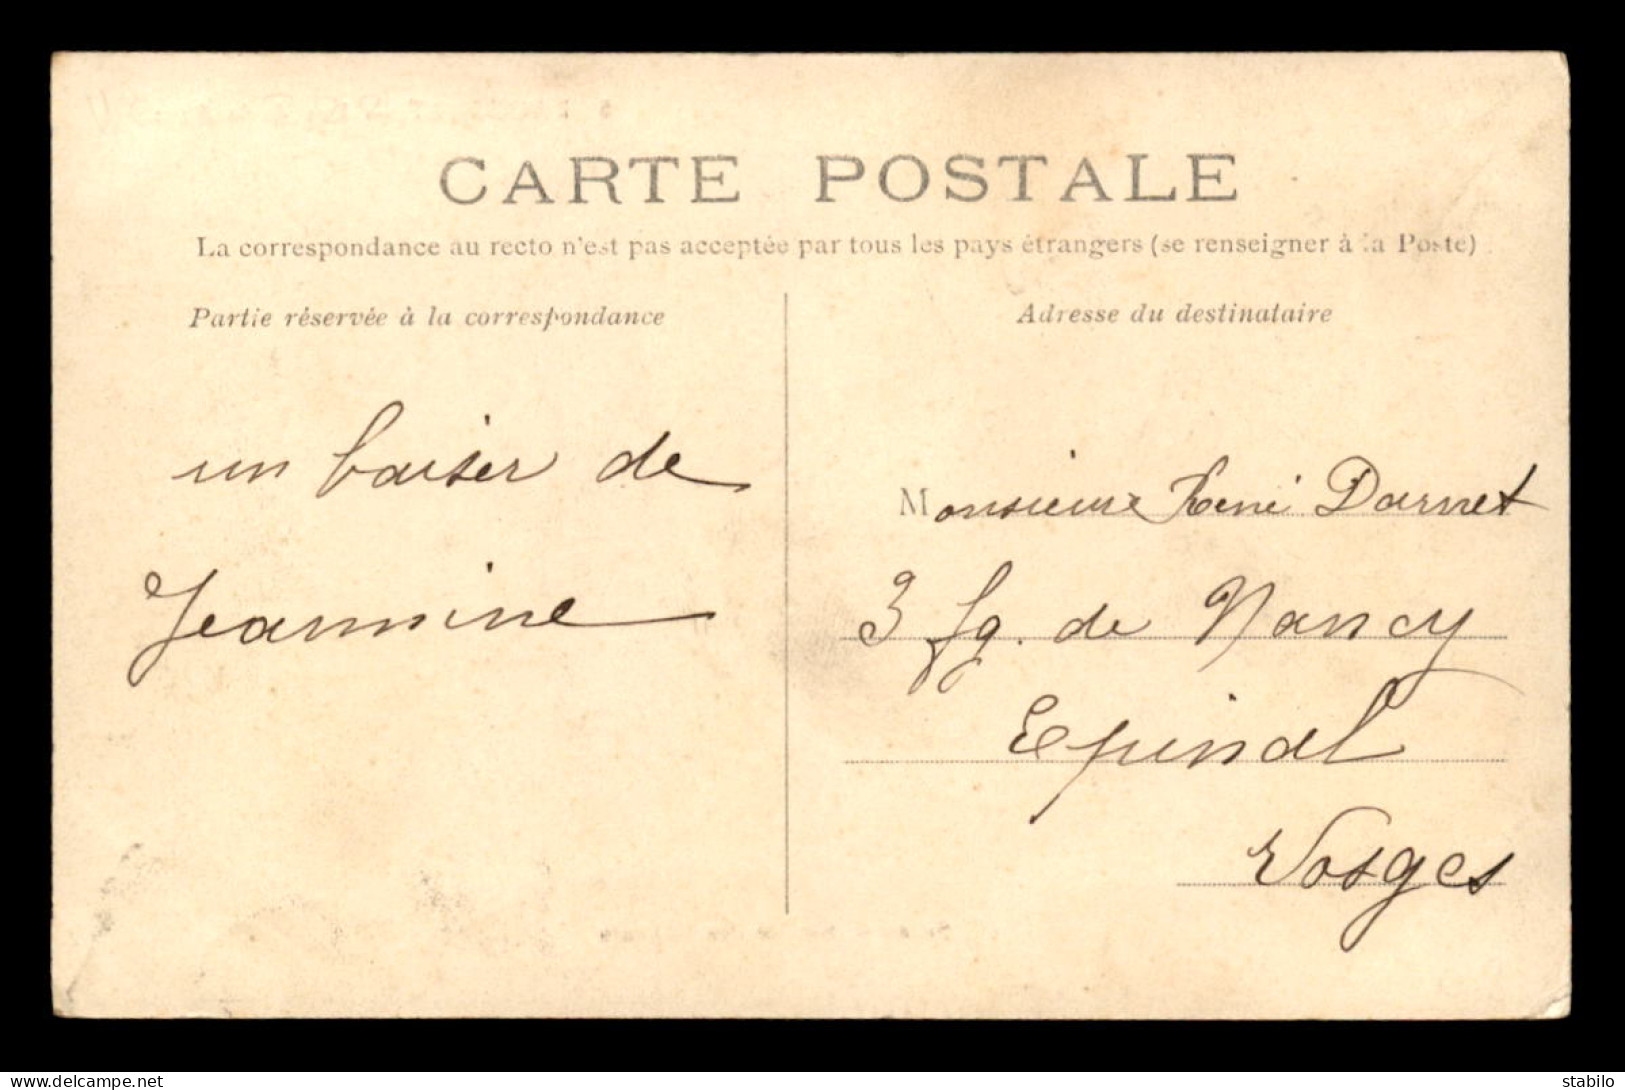 CARTE POSTALE
La correspondance au recto n'est pas acceptée par tous les pays étrangers (se renseigner à la Poste)
Partie réservée à la correspondance
Adresse du destinataire
un baiser de
Jeannine
Monsieur René Darnet
3 fg. de Nancy
Epinal
Vosges
www.delcampe.net
stabilo